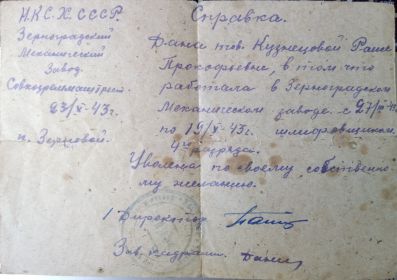 Н.К.С.Х. СССР.
Зерноградский
Механический
Завод.
Совхозреммаштрест
23/X-43г.
п. Зерновой.
Справка.
Дана тов. Кузнецовой Раис
Прокофьевне, в том что
работала в Зерноградском
Механическом заводе с 27/
по 19/X-43г. шлифовщиком
4го разряда.
Уволена по своему собственно
му желанию.
Директор
Зав. кадрами